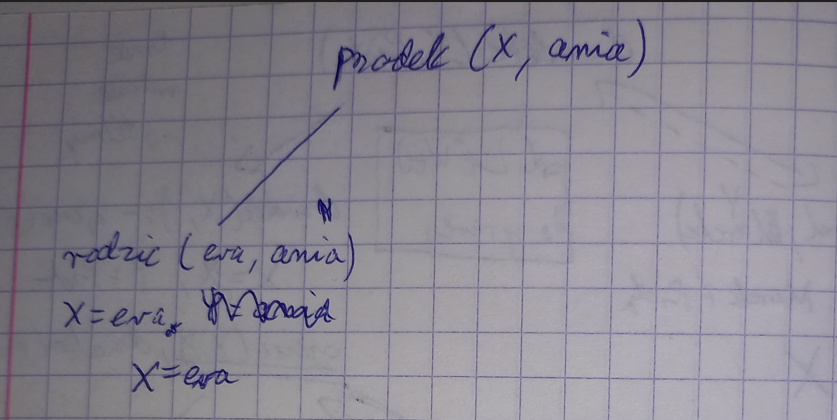 przodek (X, ania)
rodzic (ewa, ania)
X=ewa,
X=ewa